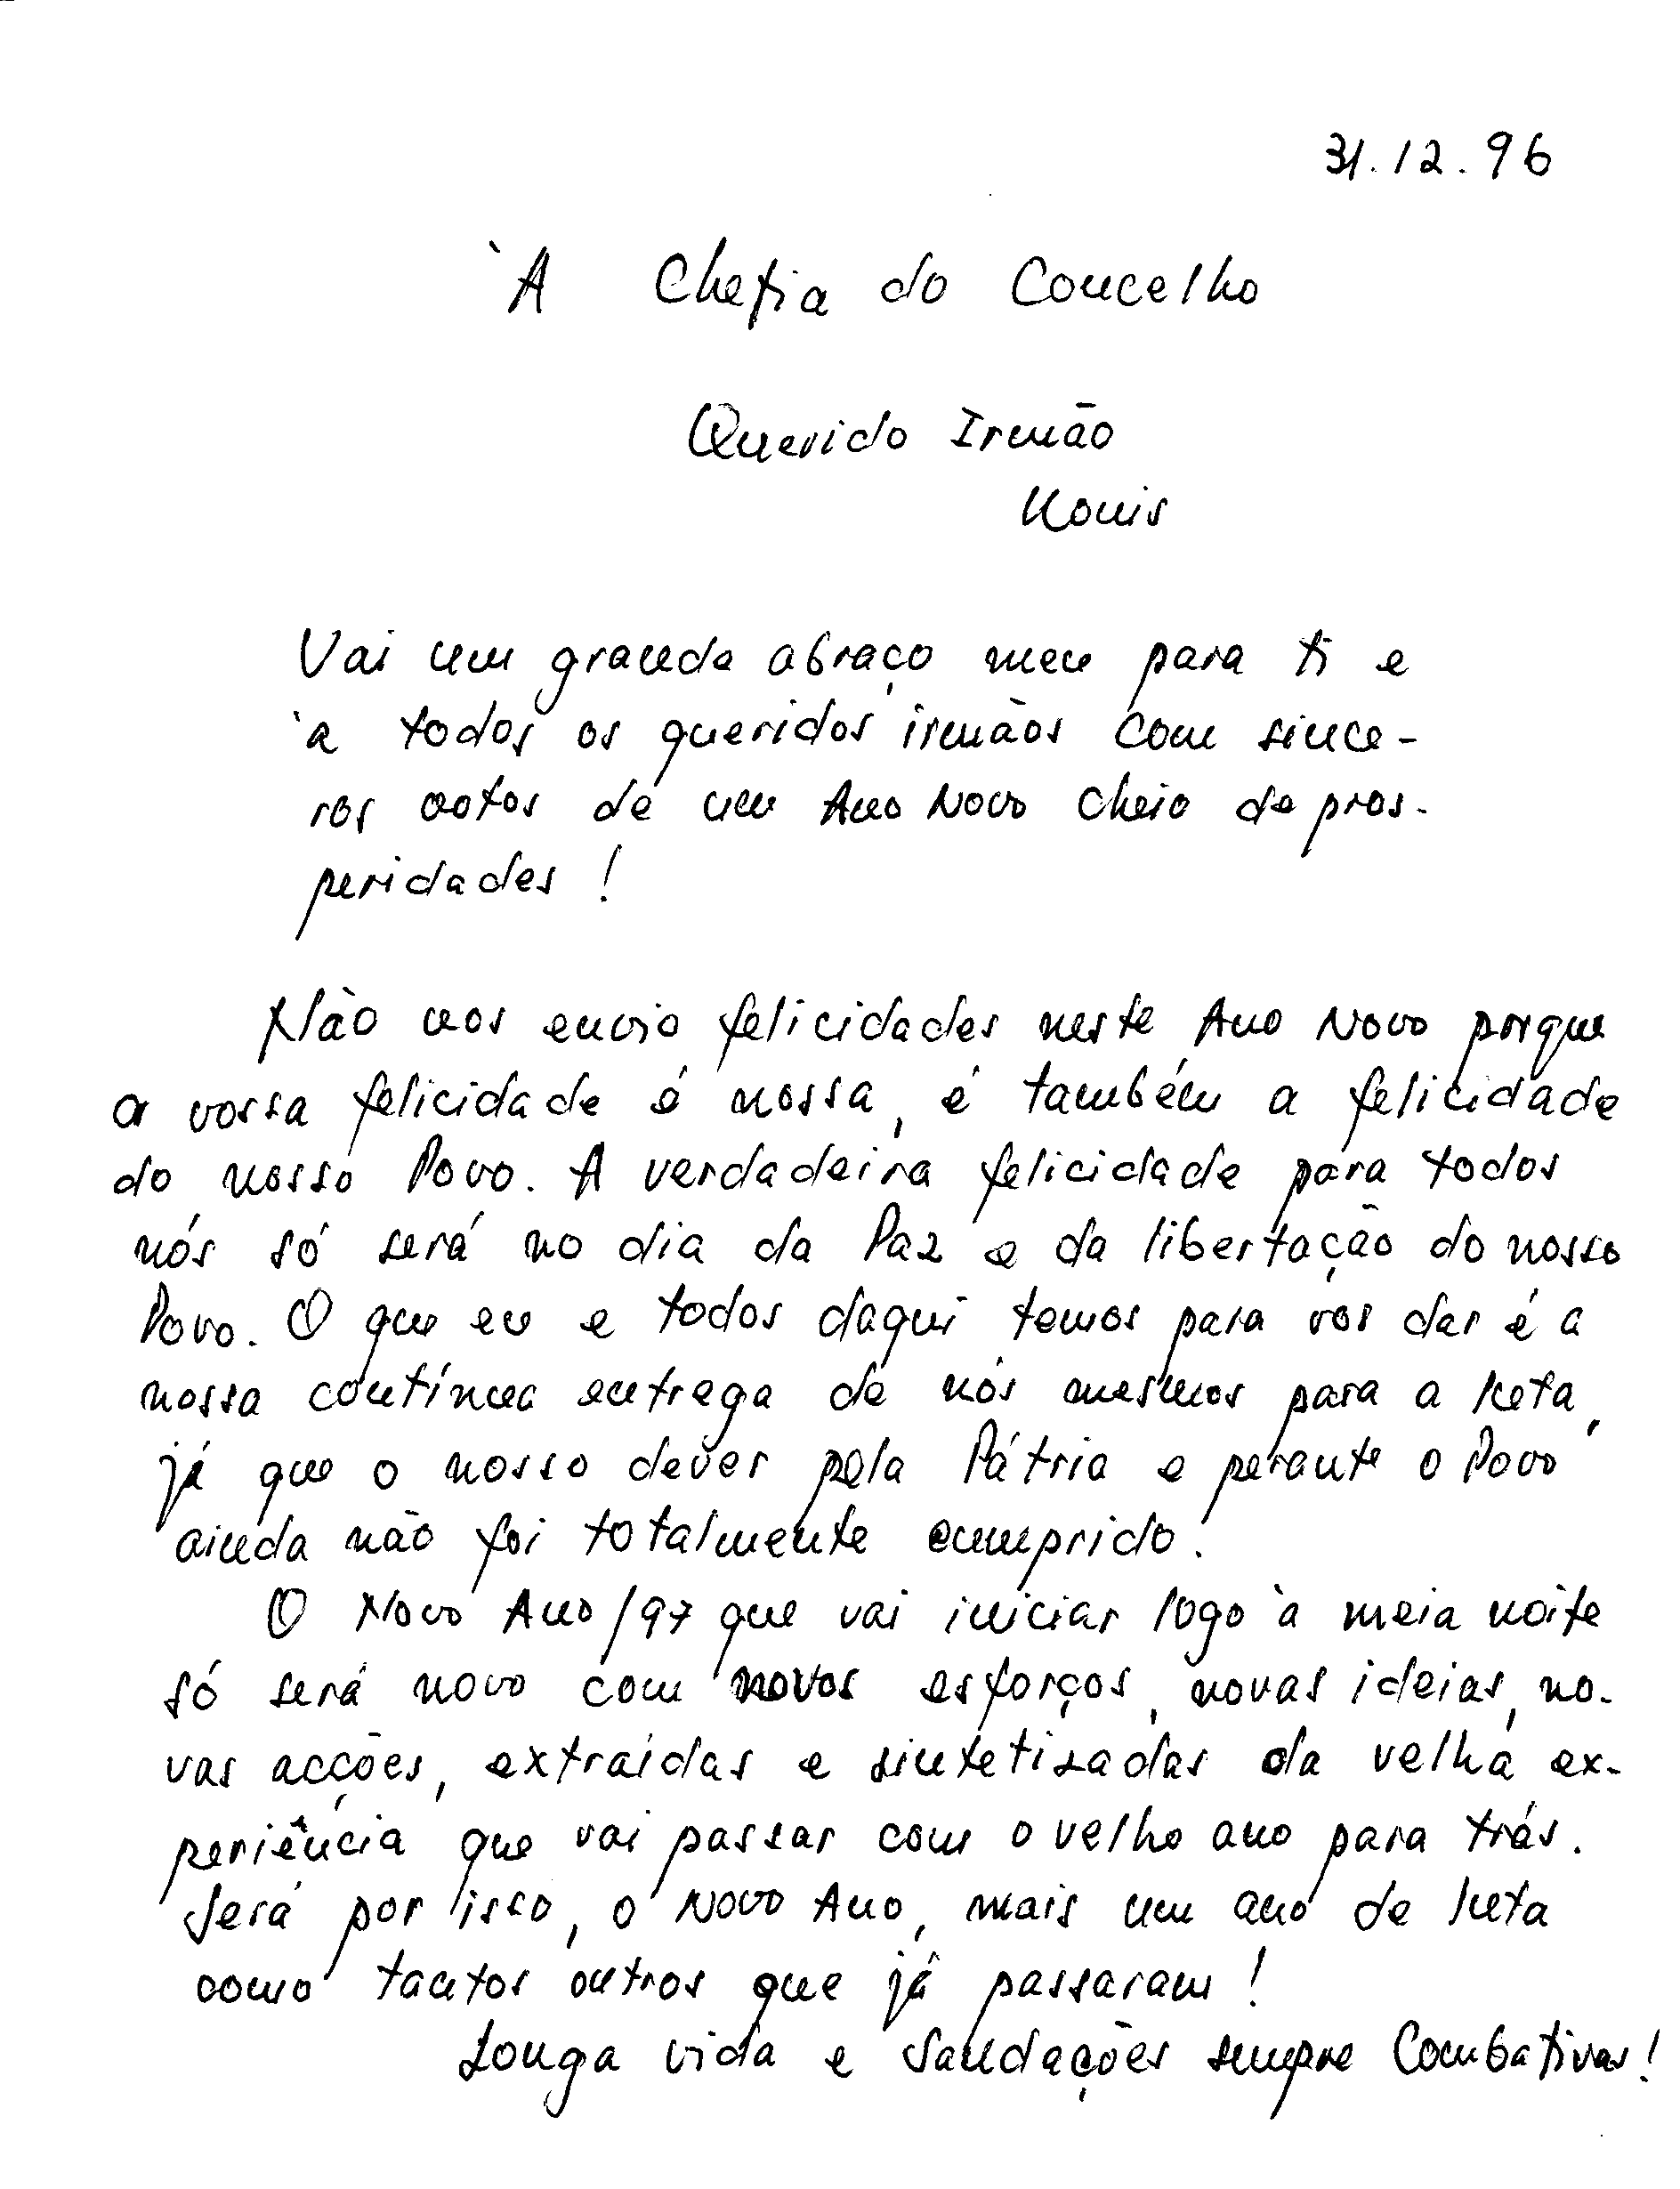 31.12.96
À Chefia do Concelho
Querido Irmão
Konis
Vai um grande abraço meu para ti e
à todos os queridos irmãos com since-
ros votos de um Ano Novo cheio de pros-
peridades!
Não vos envio felicidades neste Ano Novo porque
a vossa felicidade é nossa, é também a felicidade
do nosso Povo. A verdadeira felicidade para todos
nós só será no dia da Paz e da libertação do nosso
Povo. O que eu e todos daqui temos para vos dar é a
nossa contínua entrega de nós mesmos para a luta,
já que o nosso dever pela Pátria e perante o Povo
ainda não foi totalmente cumprido.
O Novo Ano/97 que vai iniciar logo à meia noite
só será novo com novos esforços, novas ideias, no-
vas acções, extraídas e sintetizadas da velha ex-
periência que vai passar com o velho ano para trás.
Será por isso, o Novo Ano, mais um ano de luta
como tantos outros que já passaram!
Longa vida e Saudações sempre Combativas!